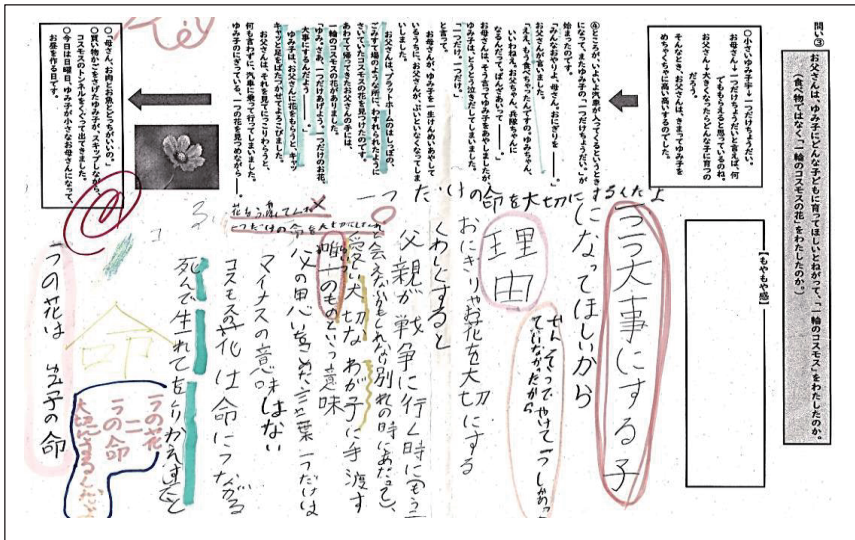 問い③
お父さんは、ゆみ子にどんな子どもに育ってほしいとねがって、「一輪のコスモス」をわたしたのか。
（食べ物ではなく、「一輪のコスモスの花」をわたしたのか。）
○小さいゆみ子→一つだけちょうだい。
お母さん→一つだけちょうだいと言えば、何でももらえると思っているのね。
お父さん→大きくなったらどんな子に育つのだろう。
そんなとき、お父さんは、きまってゆみ子をめちゃくちゃに高い高いするのでした。
【もやもや感】
④ところが、いよいよ汽車が入ってくるというときになって、またゆみ子の「一つだけちょうだい。」が始まったのです。
「みんなおやりよ、母さん。おにぎりを――。」
お父さんが言いました。
「ええ、もう食べちゃったんですの。ゆみちゃん、いいわねえ。お父ちゃん、兵隊ちゃんになるんだって。ばんざあいって――。」
お母さんは、そう言ってゆみ子をあやしましたが、ゆみ子は、とうとう泣きだしてしまいました。
「一つだけ。一つだけ。」
と言って。
お母さんが、ゆみ子を一生けんめいあやしているうちに、お父さんが、ぷいといなくなってしまいました。
お父さんは、プラットホームのはしっぽの、ごみすて場のような所に、わすれられたようにさいていたコスモスの花を見つけたのです。
あわてて帰ってきたお父さんの手には、一輪のコスモスの花がありました。
「ゆみ。さあ、一つだけあげよう。一つだけのお花、大事にするんだよう――。」
ゆみ子は、お父さんに花をもらうと、キャッキャッと足をばたつかせてよろこびました。
お父さんは、それを見てにっこりわらうと、何も言わずに、汽車に乗って行ってしまいました。
ゆみ子のにぎっている、一つの花を見つめながら――。
○「母さん、お肉とお魚とどっちがいいの。」
○買い物かごをさげたゆみ子が、スキップしながら、コスモスのトンネルをくぐって出てきました。
○今日は日曜日、ゆみ子が小さなお母さんになって、お昼を作る日です。
一つ大事にする子
になってほしいから
一つだけの命を大切に
理由
おにぎりやお花を大切にする
くわしくすると
父親が戦争に行く時にもう二
と会えないかもしれない別れの時にあたって、
愛しい大切なわが子に手渡す
唯一のものといった意味
父の思いをこめた言葉 一つだけは
マイナスの意味はない
コスモスの花は命につながる
死んで生れてをくりかえすこと
命
一つの花
＝
一つの命
一つの花は ゆみ子の命